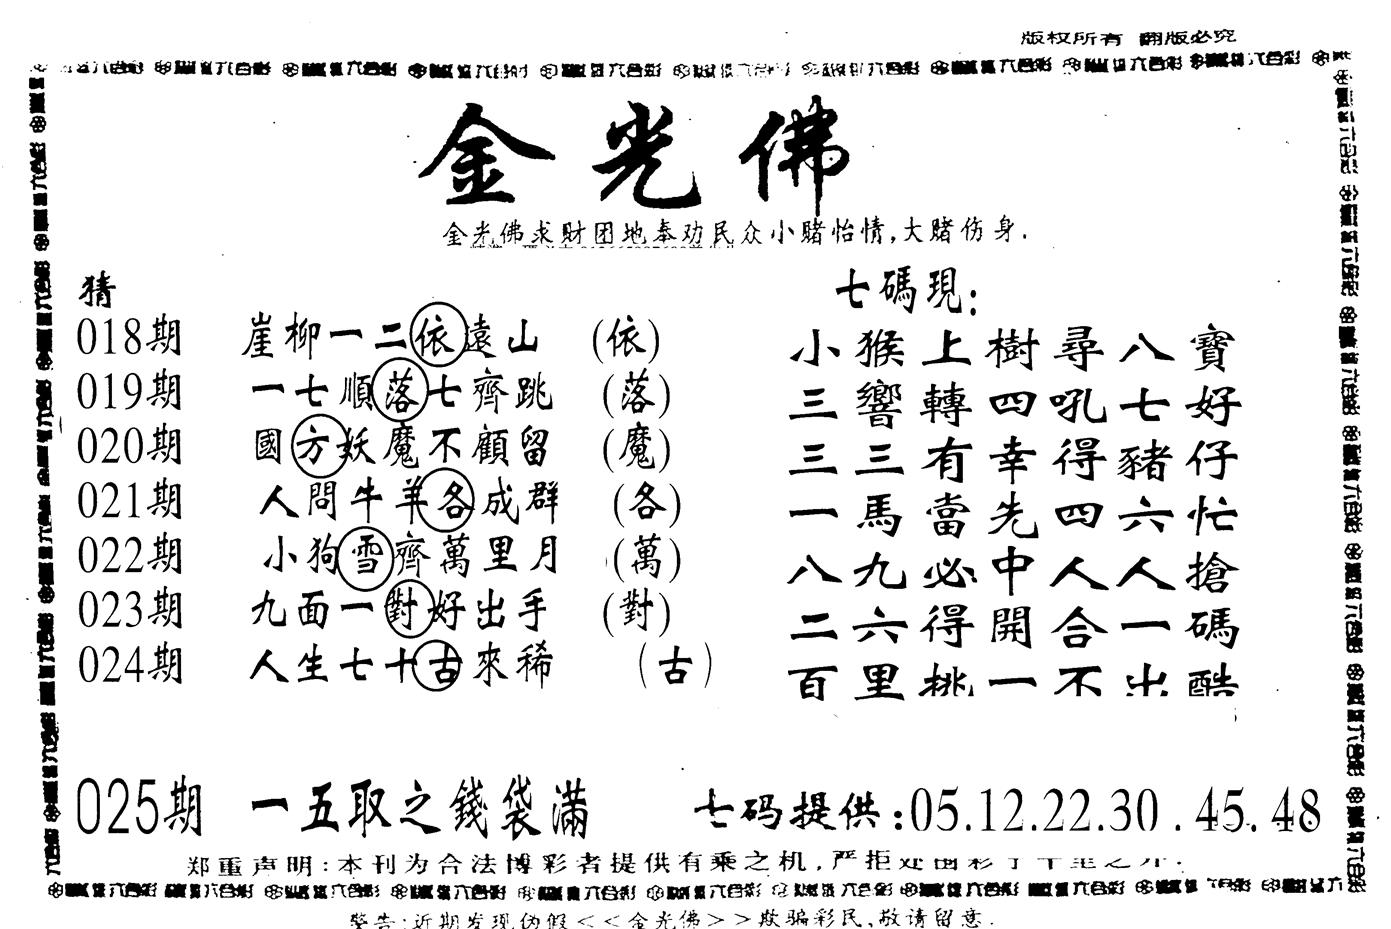 版权所有 翻版必究
金光佛
金光佛求财团地奉劝民众小赌怡情,大赌伤身.
猜
018期 崖柳一二依遠山 (依)
019期 一七順落七齊跳 (落)
020期 國方妖魔不顧留 (魔)
021期 人問牛羊各成群 (各)
022期 小狗雪齊萬里月 (萬)
023期 九面一對好出手 (對)
024期 人生七十古來稀 (古)
七碼現:
小猴上樹尋八寶
三響轉四吼七好
三三有幸得豬仔
一馬當先四六忙
八九必中人人搶
二六得開合一碼
百里挑一不出酷
025期 一五取之錢袋滿 七码提供:05.12.22.30 . 45. 48
郑重声明:本刊为合法博彩者提供有乘之机,严拒
警告:近期发现伪假<<金光佛>>欺骗彩民,敬请留意.